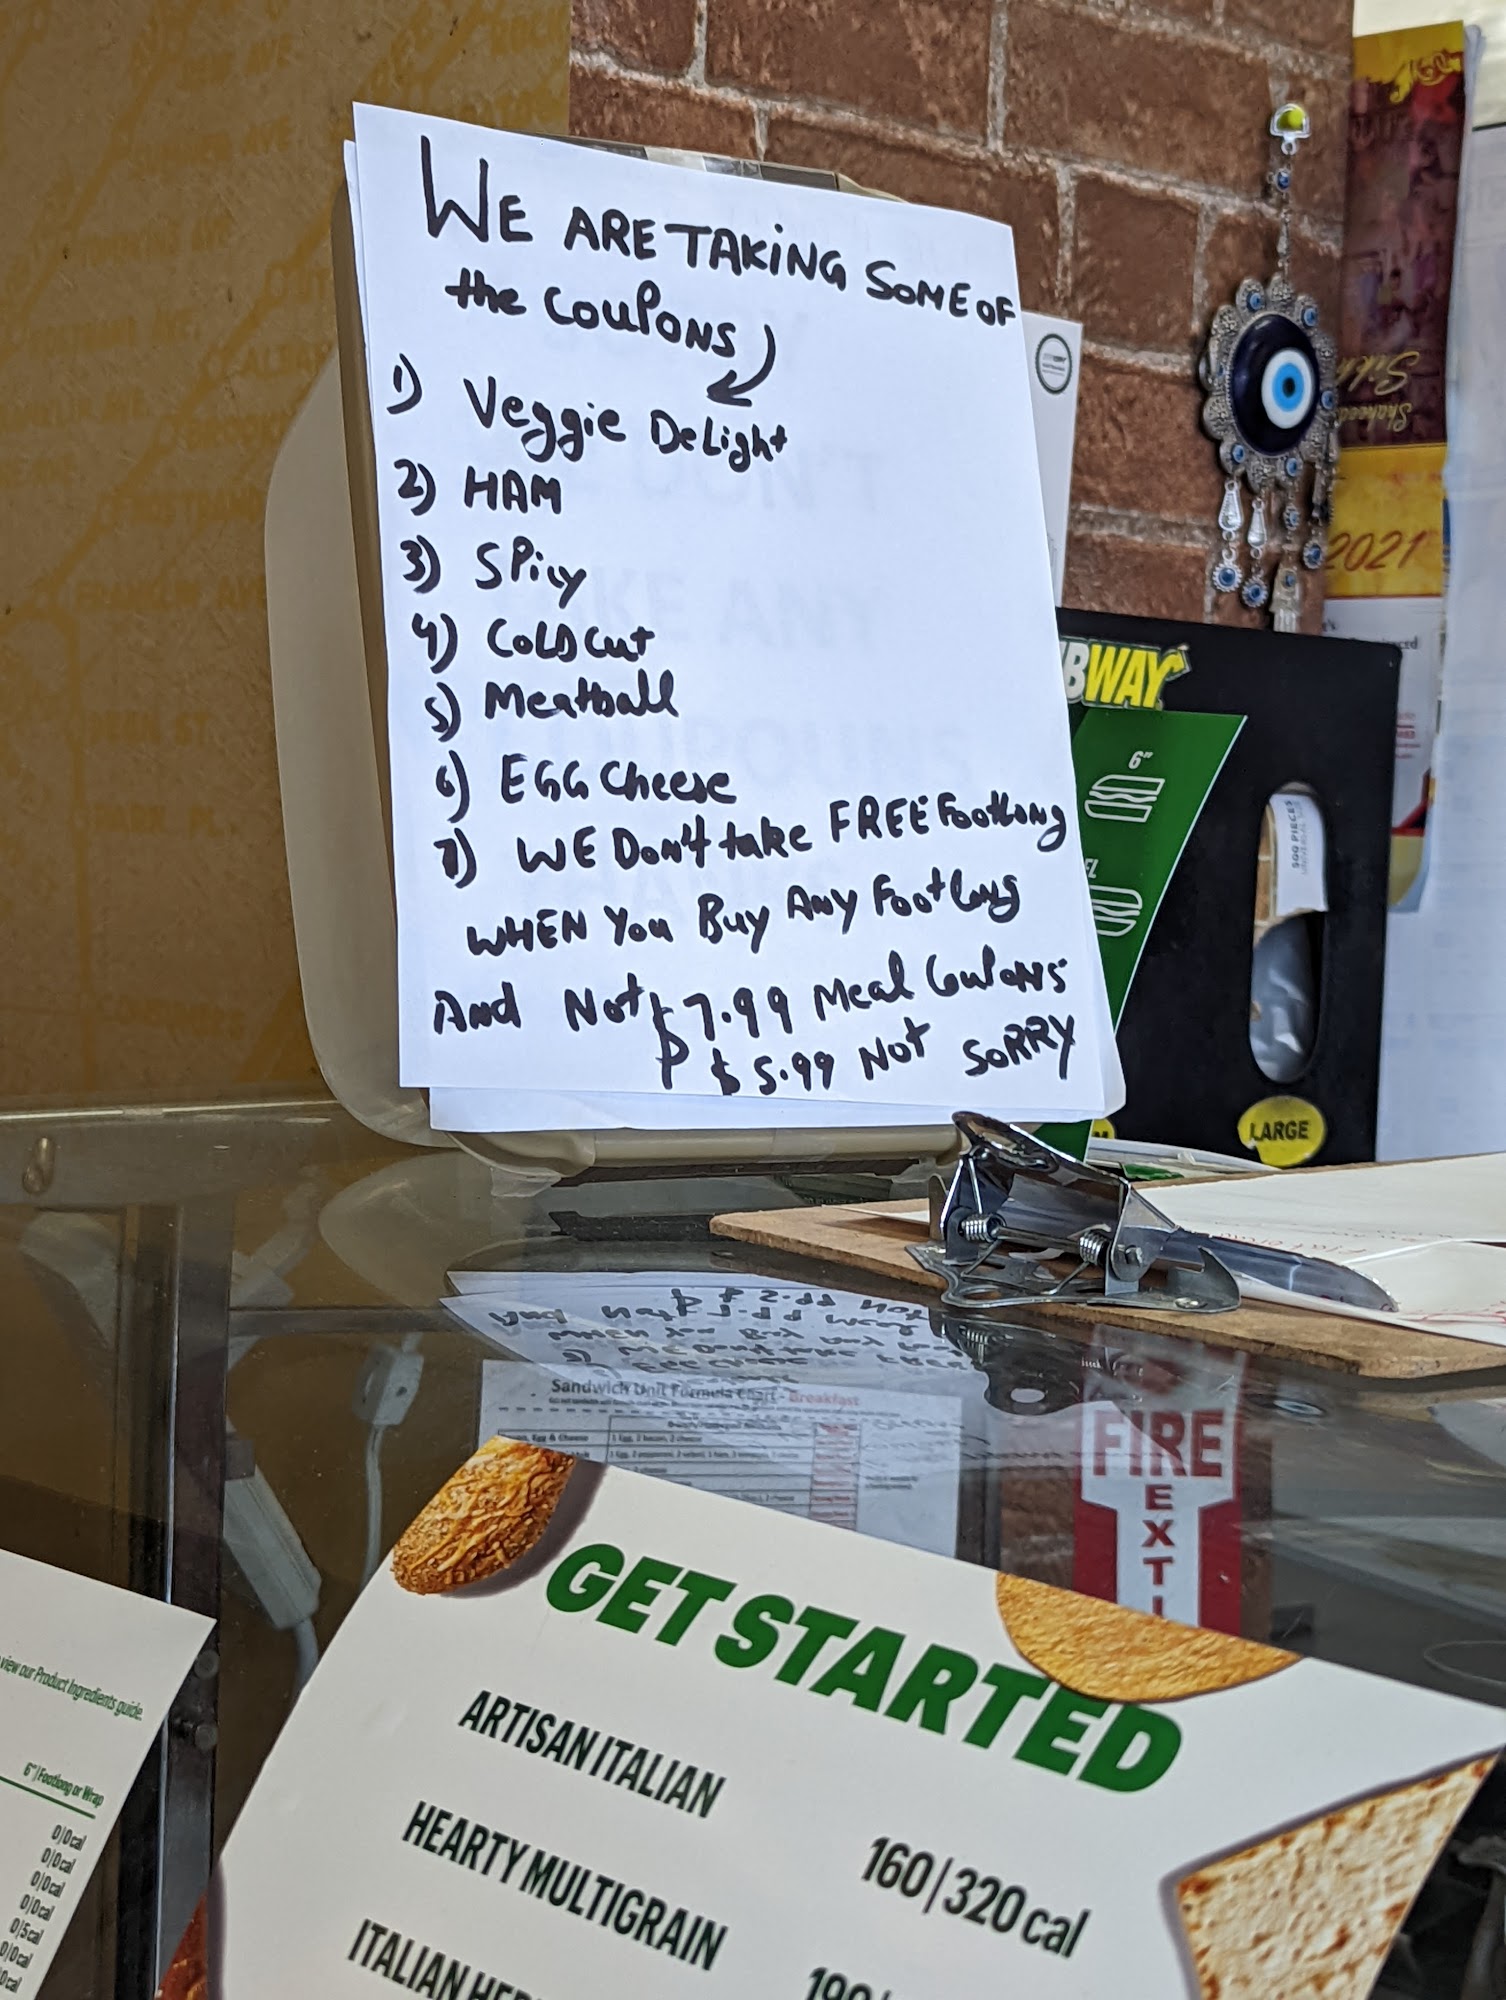 WE ARE TAKING SOME OF
the COUPONS
1) Veggie DeLight
2) HAM
3) SPicy
4) COLD Cut
5) Meatball
6) EGG Cheese
7) WE Don't take FREE FootLong
WHEN You Buy ANY FootLong
And Not $7.99 Meal CouPoNS
$5.99 Not SORRY
BWAY
6"
2021
500 PIECES
LARGE
Sandwich Unit Formula Chart - Breakfast
FIRE
EXTI
GET STARTED
ARTISAN ITALIAN
160|320 cal
HEARTY MULTIGRAIN
ITALIAN HER
view our Product Ingredients guide.
6"|Footlong or Wrap
0|0 cal
0|0 cal
0|0 cal
0|0 cal
0|5 cal
0|0 cal
0 cal